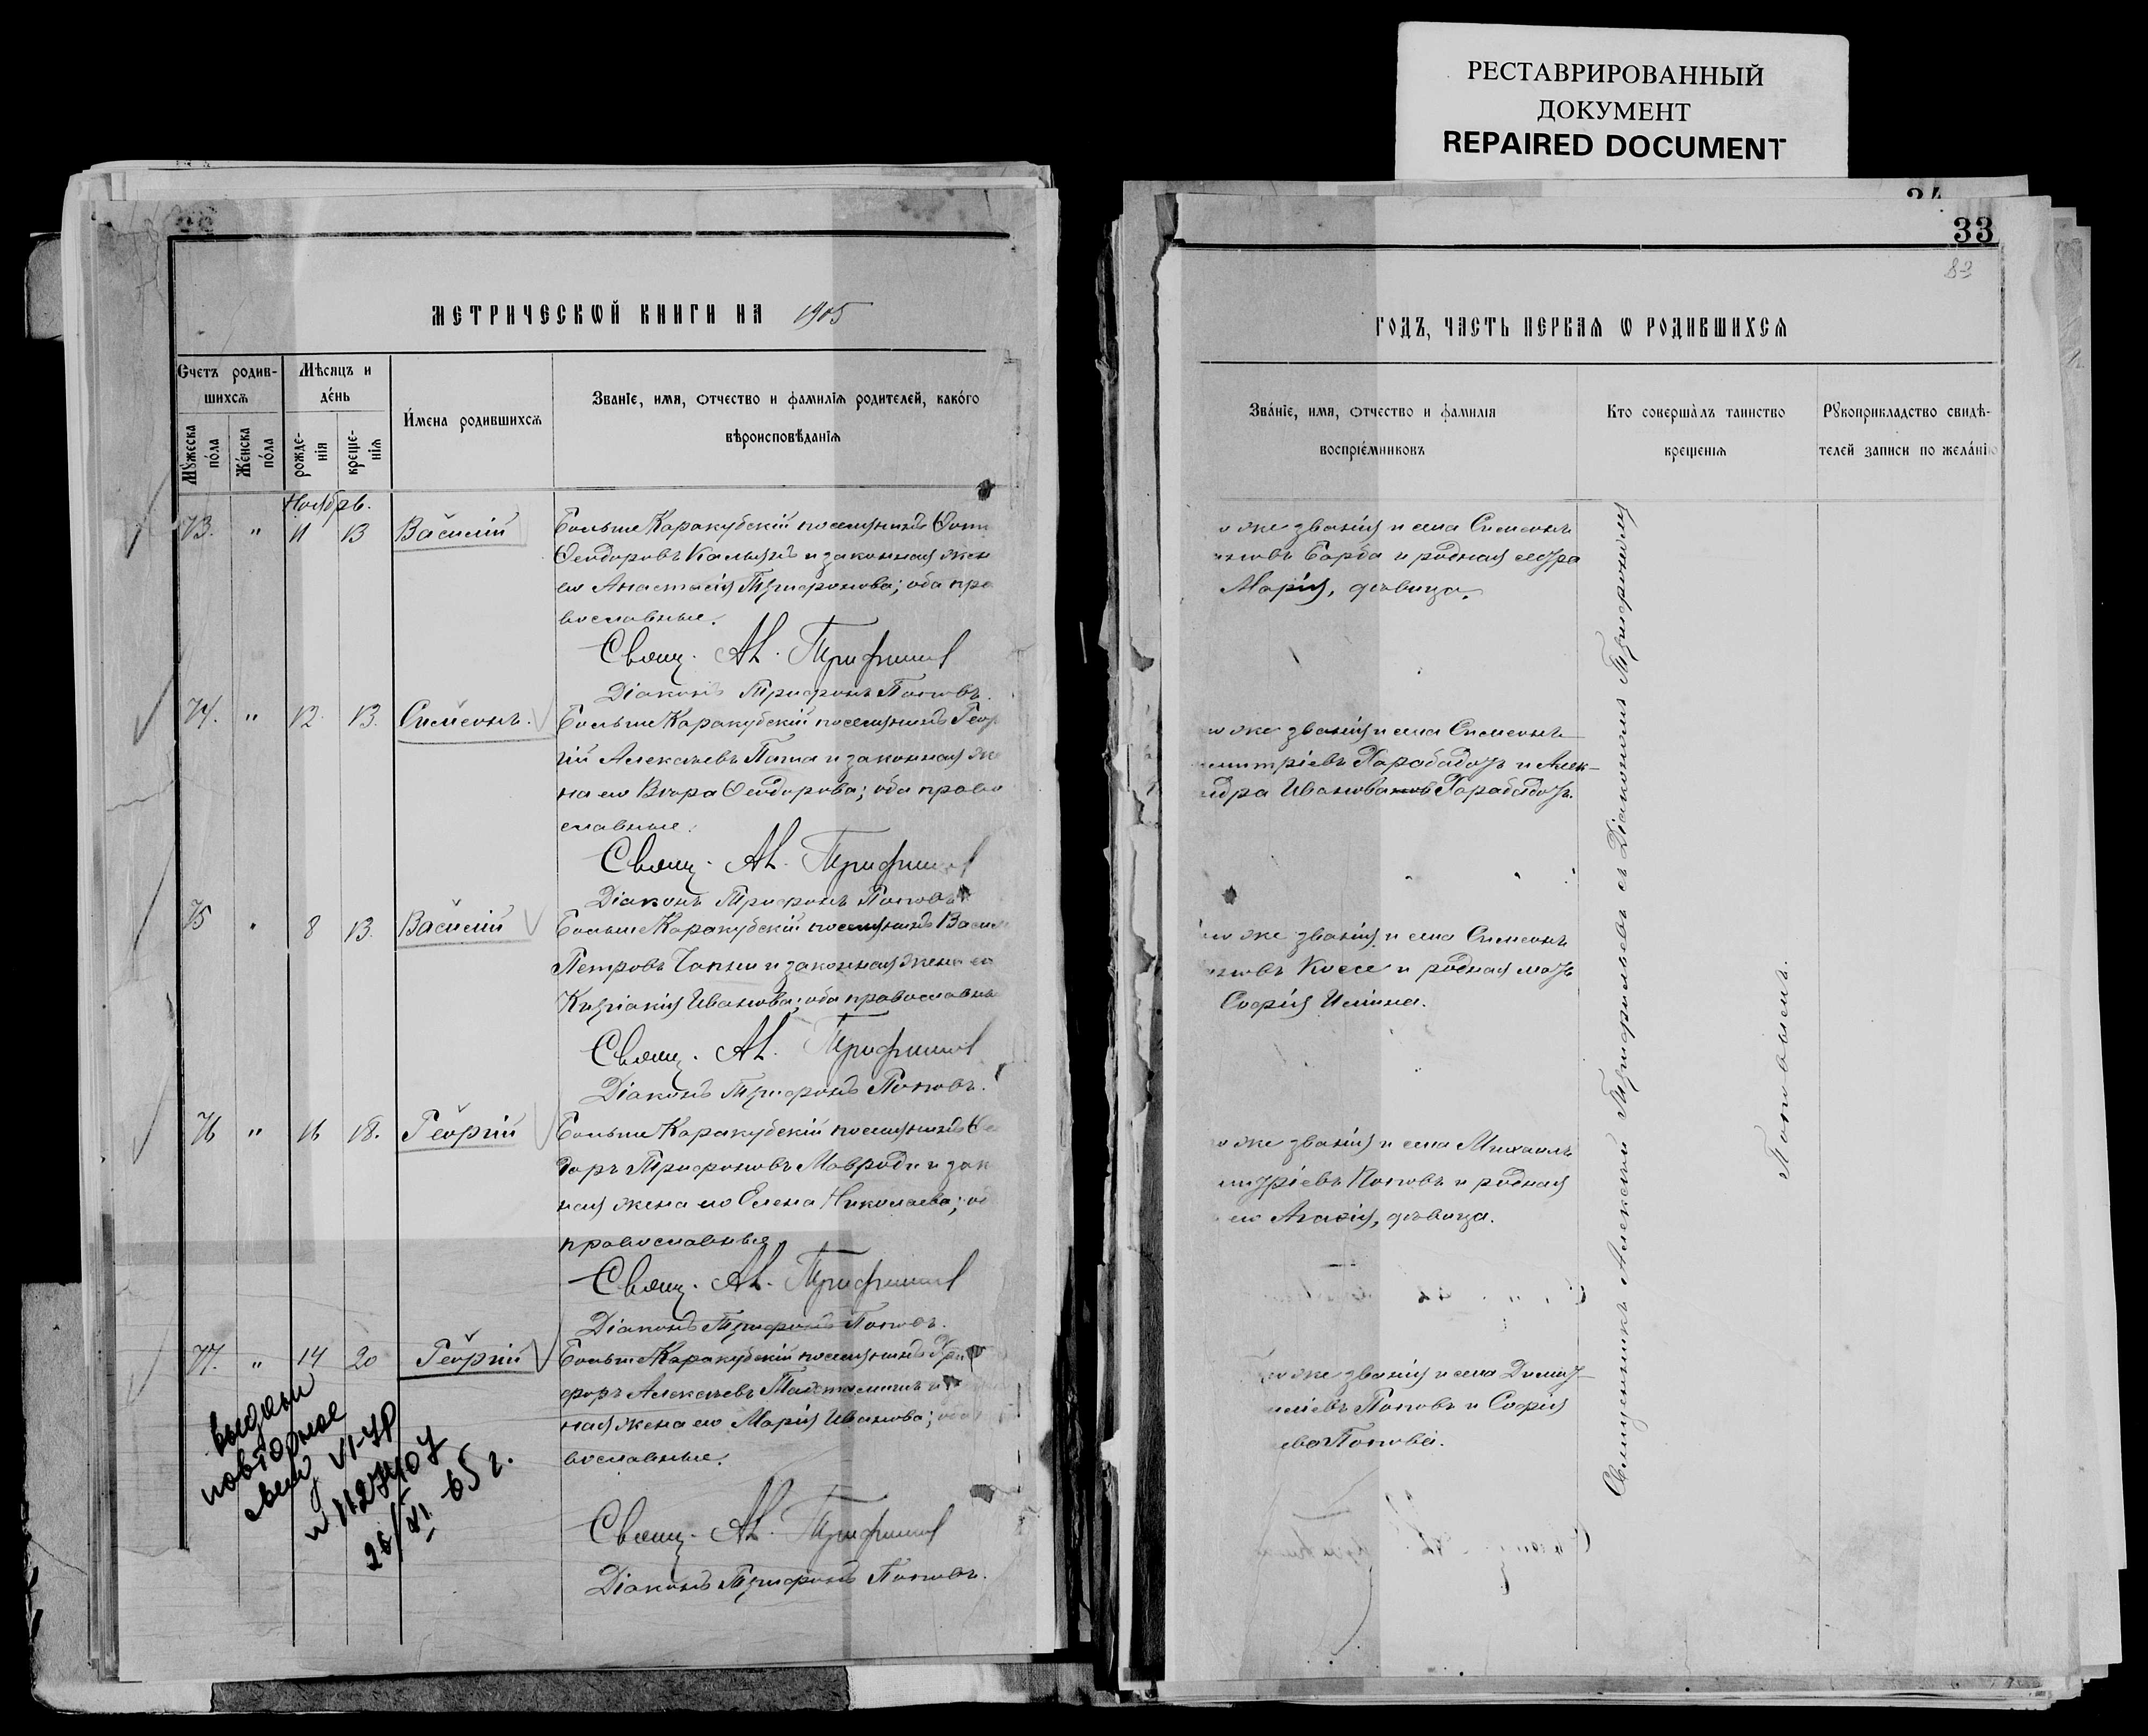 РЕСТАВРИРОВАННЫЙ
ДОКУМЕНТ
REPAIRED DOCUMENT
33
83
МЕТРИЧЕСКѠЙ КНИГИ НА 1905
Счетъ родив-
шихсѧ
Мꙋ́жеска
по́ла
Же́нска
по́ла
Мѣсяцъ и
де́нь
рожде-
нія
креще-
нія
И́мена родившихсѧ
Званіе, имя, отчество и фамилія родителей, како́го
вѣроисповѣ́данія
Ноябрь.
73. " 11 13 Василій
Больше Каракубскій поселянинъ
Ѳеодоровъ и законная жен
его Анастасія Трифонова; оба пра
вославные.
Свящ. Ал. Трифильев
Діаконъ Трифонъ Поповъ.
74. " 12. 13. Симеонъ.
Больше Каракубскій поселянинъ Геор
гій Алексѣевъ Папа и законная же
на его Вѣра Ѳеодорова; оба право
славные.
Свящ. Ал. Трифильев
Діаконъ Трифонъ Поповъ
75 " 8 13. Василій
Больше Каракубскій поселянинъ Васил
Петровъ Чапни и законная жена его
Киріакія Иванова; оба православны
Свящ. Ал. Трифильев
Діаконъ Трифонъ Поповъ.
76 " 16 18. Георгій
Больше Каракубскій поселянинъ Ѳео
доръ Трифоновъ Мавроди и зак
ная жена его Елена Николаева; об
православные
Свящ. Ал. Трифильев
Діаконъ Трифонъ Поповъ.
77. " 14 20 Георгій
Больше Каракубскій поселянинъ Хри
форъ Алексѣевъ
ная жена его Марія Иванова; оба
вославные.
Свящ. Ал. Трифильев
Діаконъ Трифонъ Поповъ.
выдано
повторное
свид VI-УР
N 112740
26/XI 65 г.
ГОДЪ, ЧАСТЬ ПЕРВАѦ Ѡ РОДИВШИХСѦ
Зва́ніе, имя, отчество и фамилія
воспріе́мниковъ
Кто соверша̀лъ таинство
крещенія
Рꙋкоприкладство свидѣ-
телей записи по жела́нію
о же званія и села Симеонъ
новъ Барба и родная сестра
Марія, дѣвица.
о же званія и села Симеонъ
митріевъ Харабадотъ и Алек-
ндра Иванова Харабадотъ.
о же званія и села Симеонъ
новъ Коссе и родная мать
Софія Иліина.
о же званія и села Михаилъ
митріевъ Поповъ и родная
его Агафія, дѣвица.
о же званія и села Димит-
иліевъ Поповъ и Софія
ева Попова.
Священникъ Алексѣй Трифильевъ съ Діакономъ Трифономъ
Поповымъ.